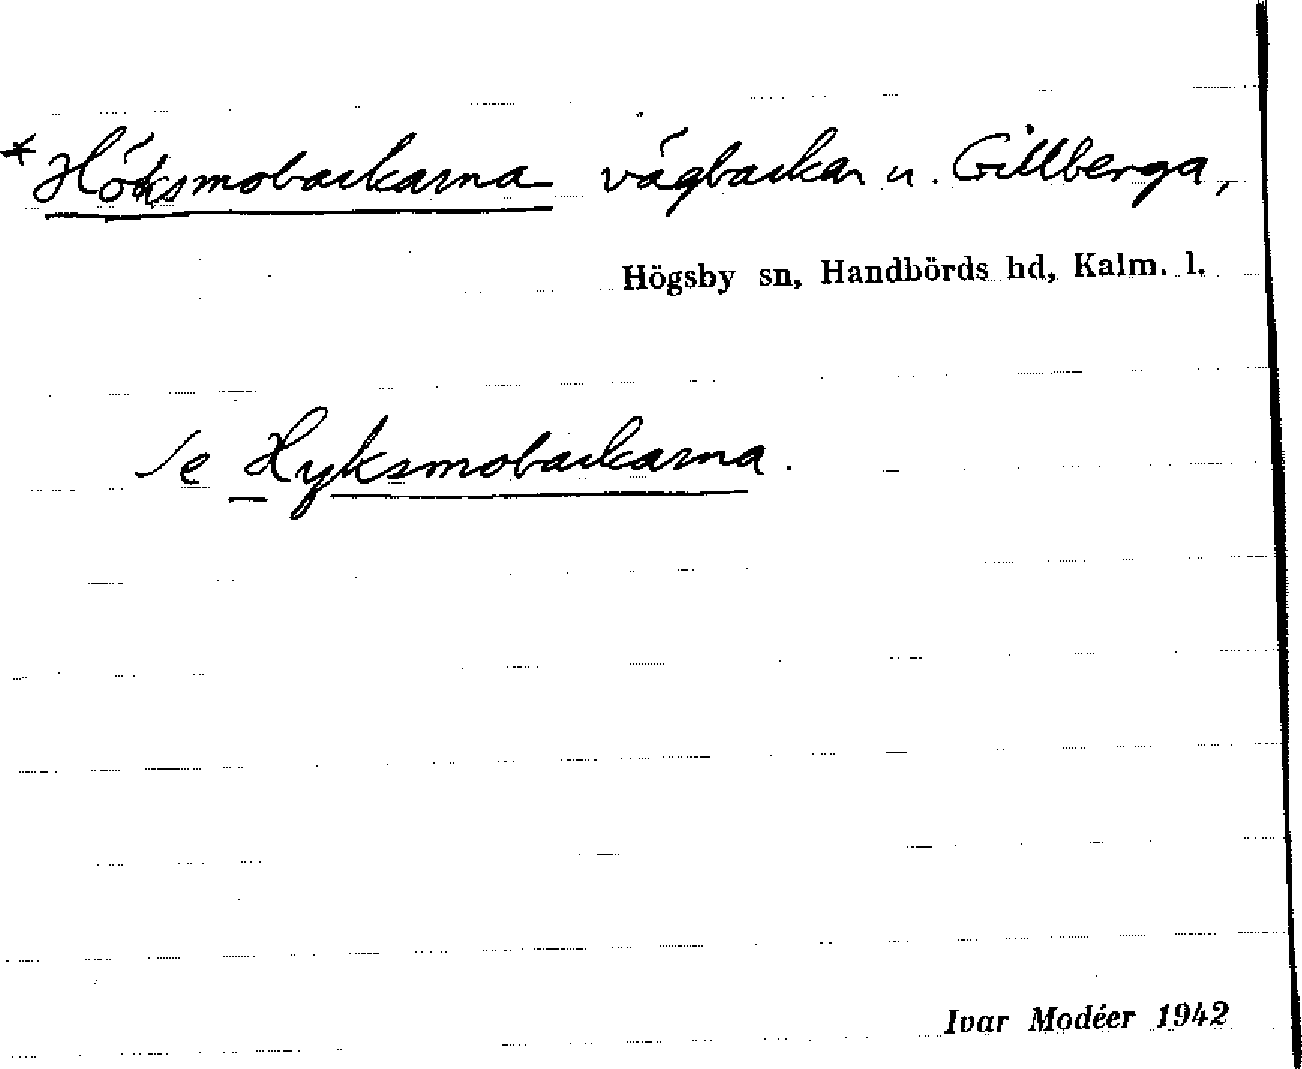 *Höksmobackarna vägbackar u. Gillberga,
Högsby sn, Handbörds hd, Kalm. l.
Se Hyksmobackarna.
Ivar Modéer 1942